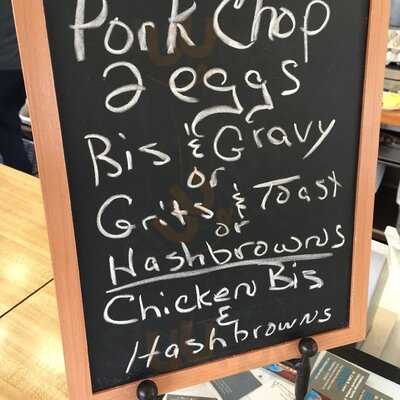 Pork Chop
2 eggs
Bis & Gravy
or
Grits & Toast
or
Hashbrowns
Chicken Bis
&
Hashbrowns